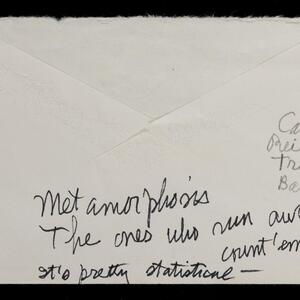 Ca
Rei
Tr
Ba
Metamorphosis
The ones who run aw
count'em
it's pretty statistical —